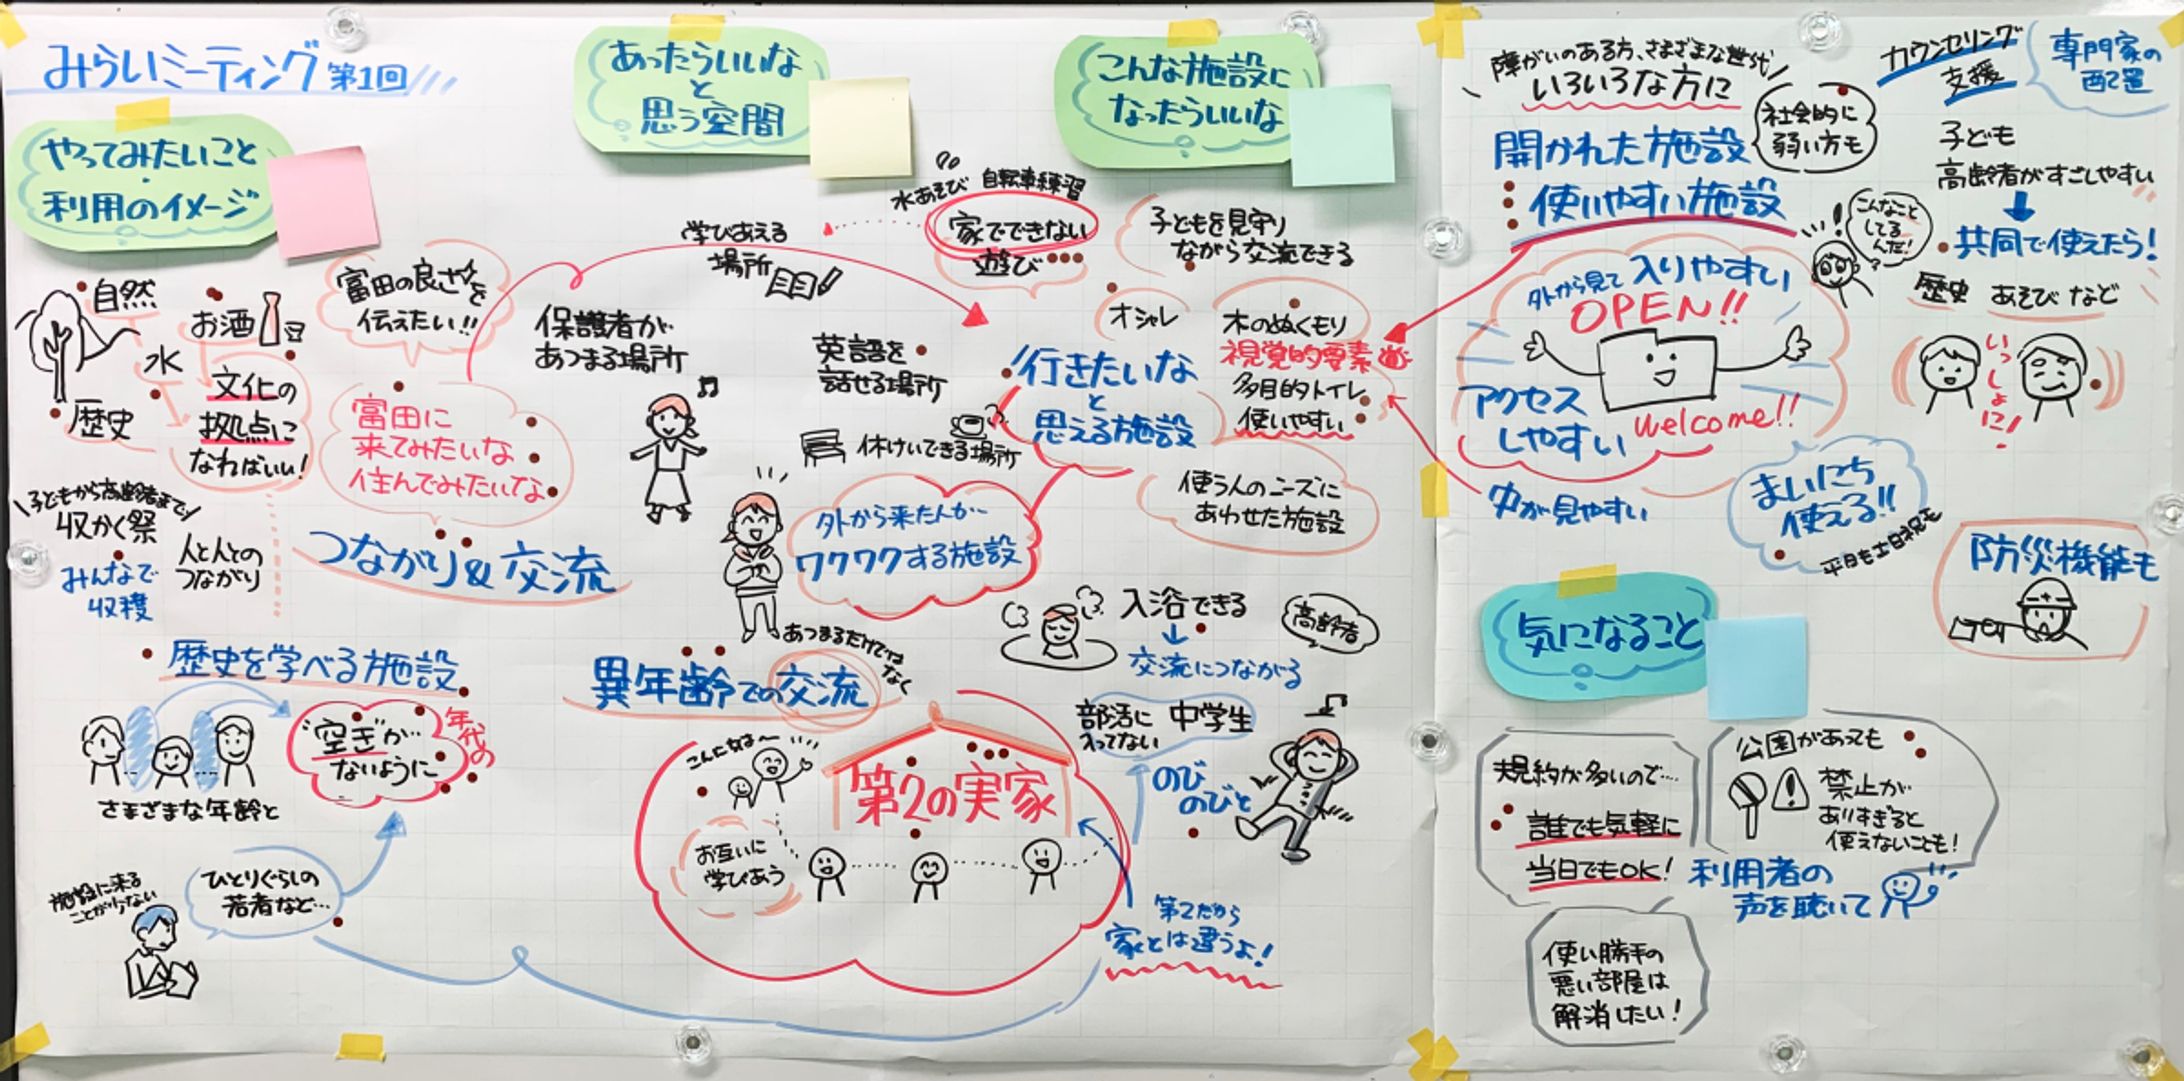 みらいミーティング 第1回
やってみたいこと
・
利用のイメージ
あったらいいな
と
思う空間
こんな施設に
なったらいいな
自然
お酒
水
歴史
文化の
拠点に
なればいい!
富田の良さを
伝えたい!!
富田に
来てみたいな
住んでみたいな
子どもから高齢者まで
収かく祭
みんなで
収穫
人と人との
つながり
つながり&交流
歴史を学べる施設
さまざまな年齢と
年代の
"空き"が…
ないように
施設に来る
ことが少ない
ひとりぐらしの
若者など…
学びあえる
場所
保護者が
あつまる場所
水あそび 自転車練習
家でできない
遊び
子どもを見守り
ながら交流できる
英語を
話せる場所
休けいできる場所
オシャレ
行きたいな
と
思える施設
木のぬくもり
視覚的要素
多目的トイレ
使いやすい
使う人のニーズに
あわせた施設
外から来た人が
ワクワクする施設
入浴できる
交流につながる
高齢者
あつまるだけではなく
異年齢での交流
部活に
入ってない
中学生
のび
のびと
第2の実家
お互いに
学びあう
第2だから
家とは違うよ!
障がいのある方、さまざまな世代
いろいろな方に
開かれた施設
使いやすい施設
社会的に
弱い方も
カウンセリング
支援
専門家の
配置
子ども
高齢者がすごしやすい
共同で使えたら!
歴史 あそび など
いっしょに!
こんなこと
してる
んだ!
外から見て 入りやすい
OPEN!!
アクセス
しやすい
welcome!!
中が見やすい
まいにち
使える!!
平日も土日祝も
防災機能も
気になること
規約が多いので…
誰でも気軽に
当日でもOK!
公園があっても
禁止が
ありすぎると
使えないことも!
利用者の
声を聴いて
使い勝手の
悪い部屋は
解消したい!